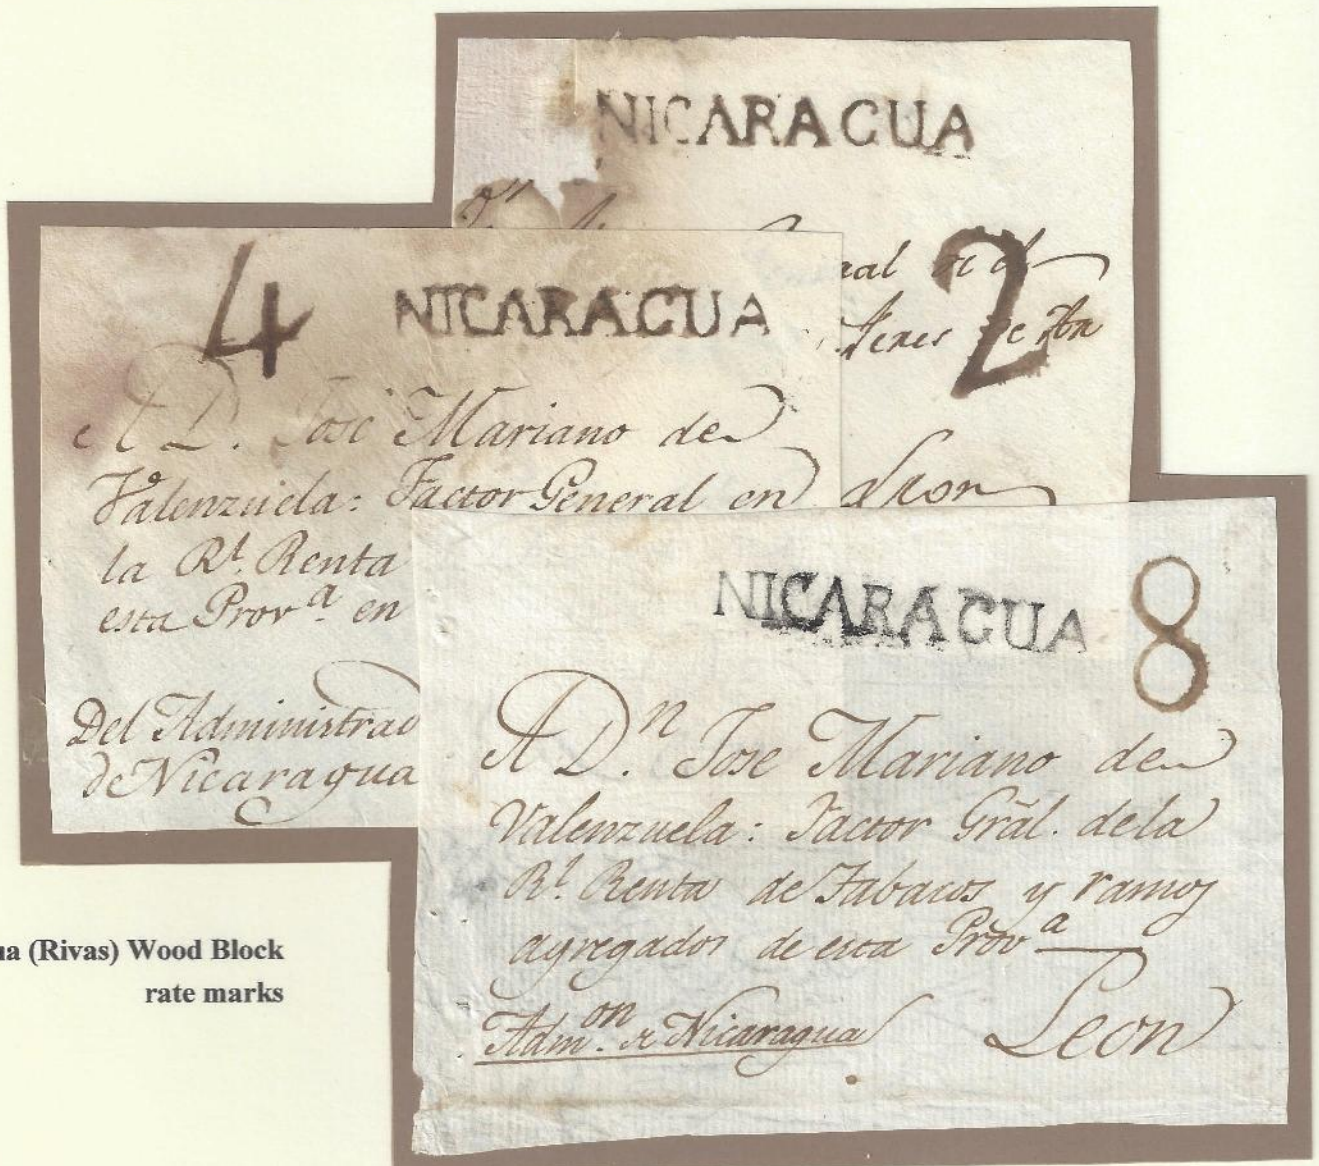 NICARAGUA
2
Leon
4 NICARAGUA
A D. José Mariano de
Valenzuela: Factor General en
la Rl. Renta
esta Prova. en
Del Administrad
de Nicaragua
NICARAGUA 8
A Dn. Jose Mariano de
Valenzuela: Factor Grãl. de la
Rl. Renta de Tabacos y ramos
agregados de esta Prova
Admon. de Nicaragua Leon
ua (Rivas) Wood Block
rate marks